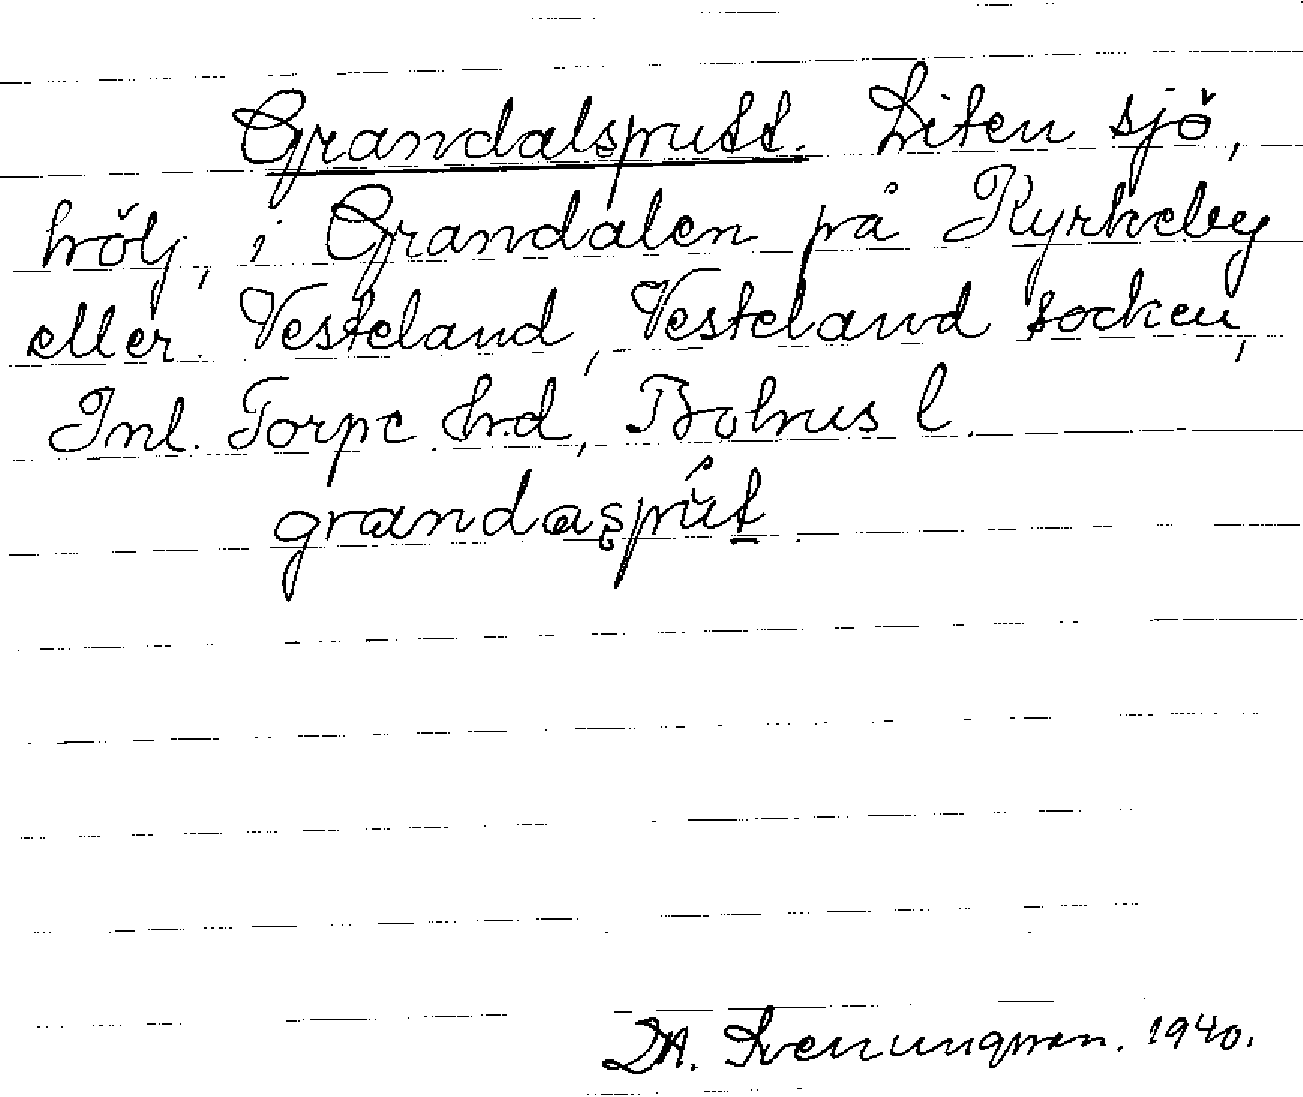 Grandalsputt. Liten sjö,
hölj, i Grandalen på Kyrkeby
eller Vesteland, Vesteland socken,
Inl. Torpe hrd, Bohus l.
grandaspút
D.A. Svenungsson. 1940.